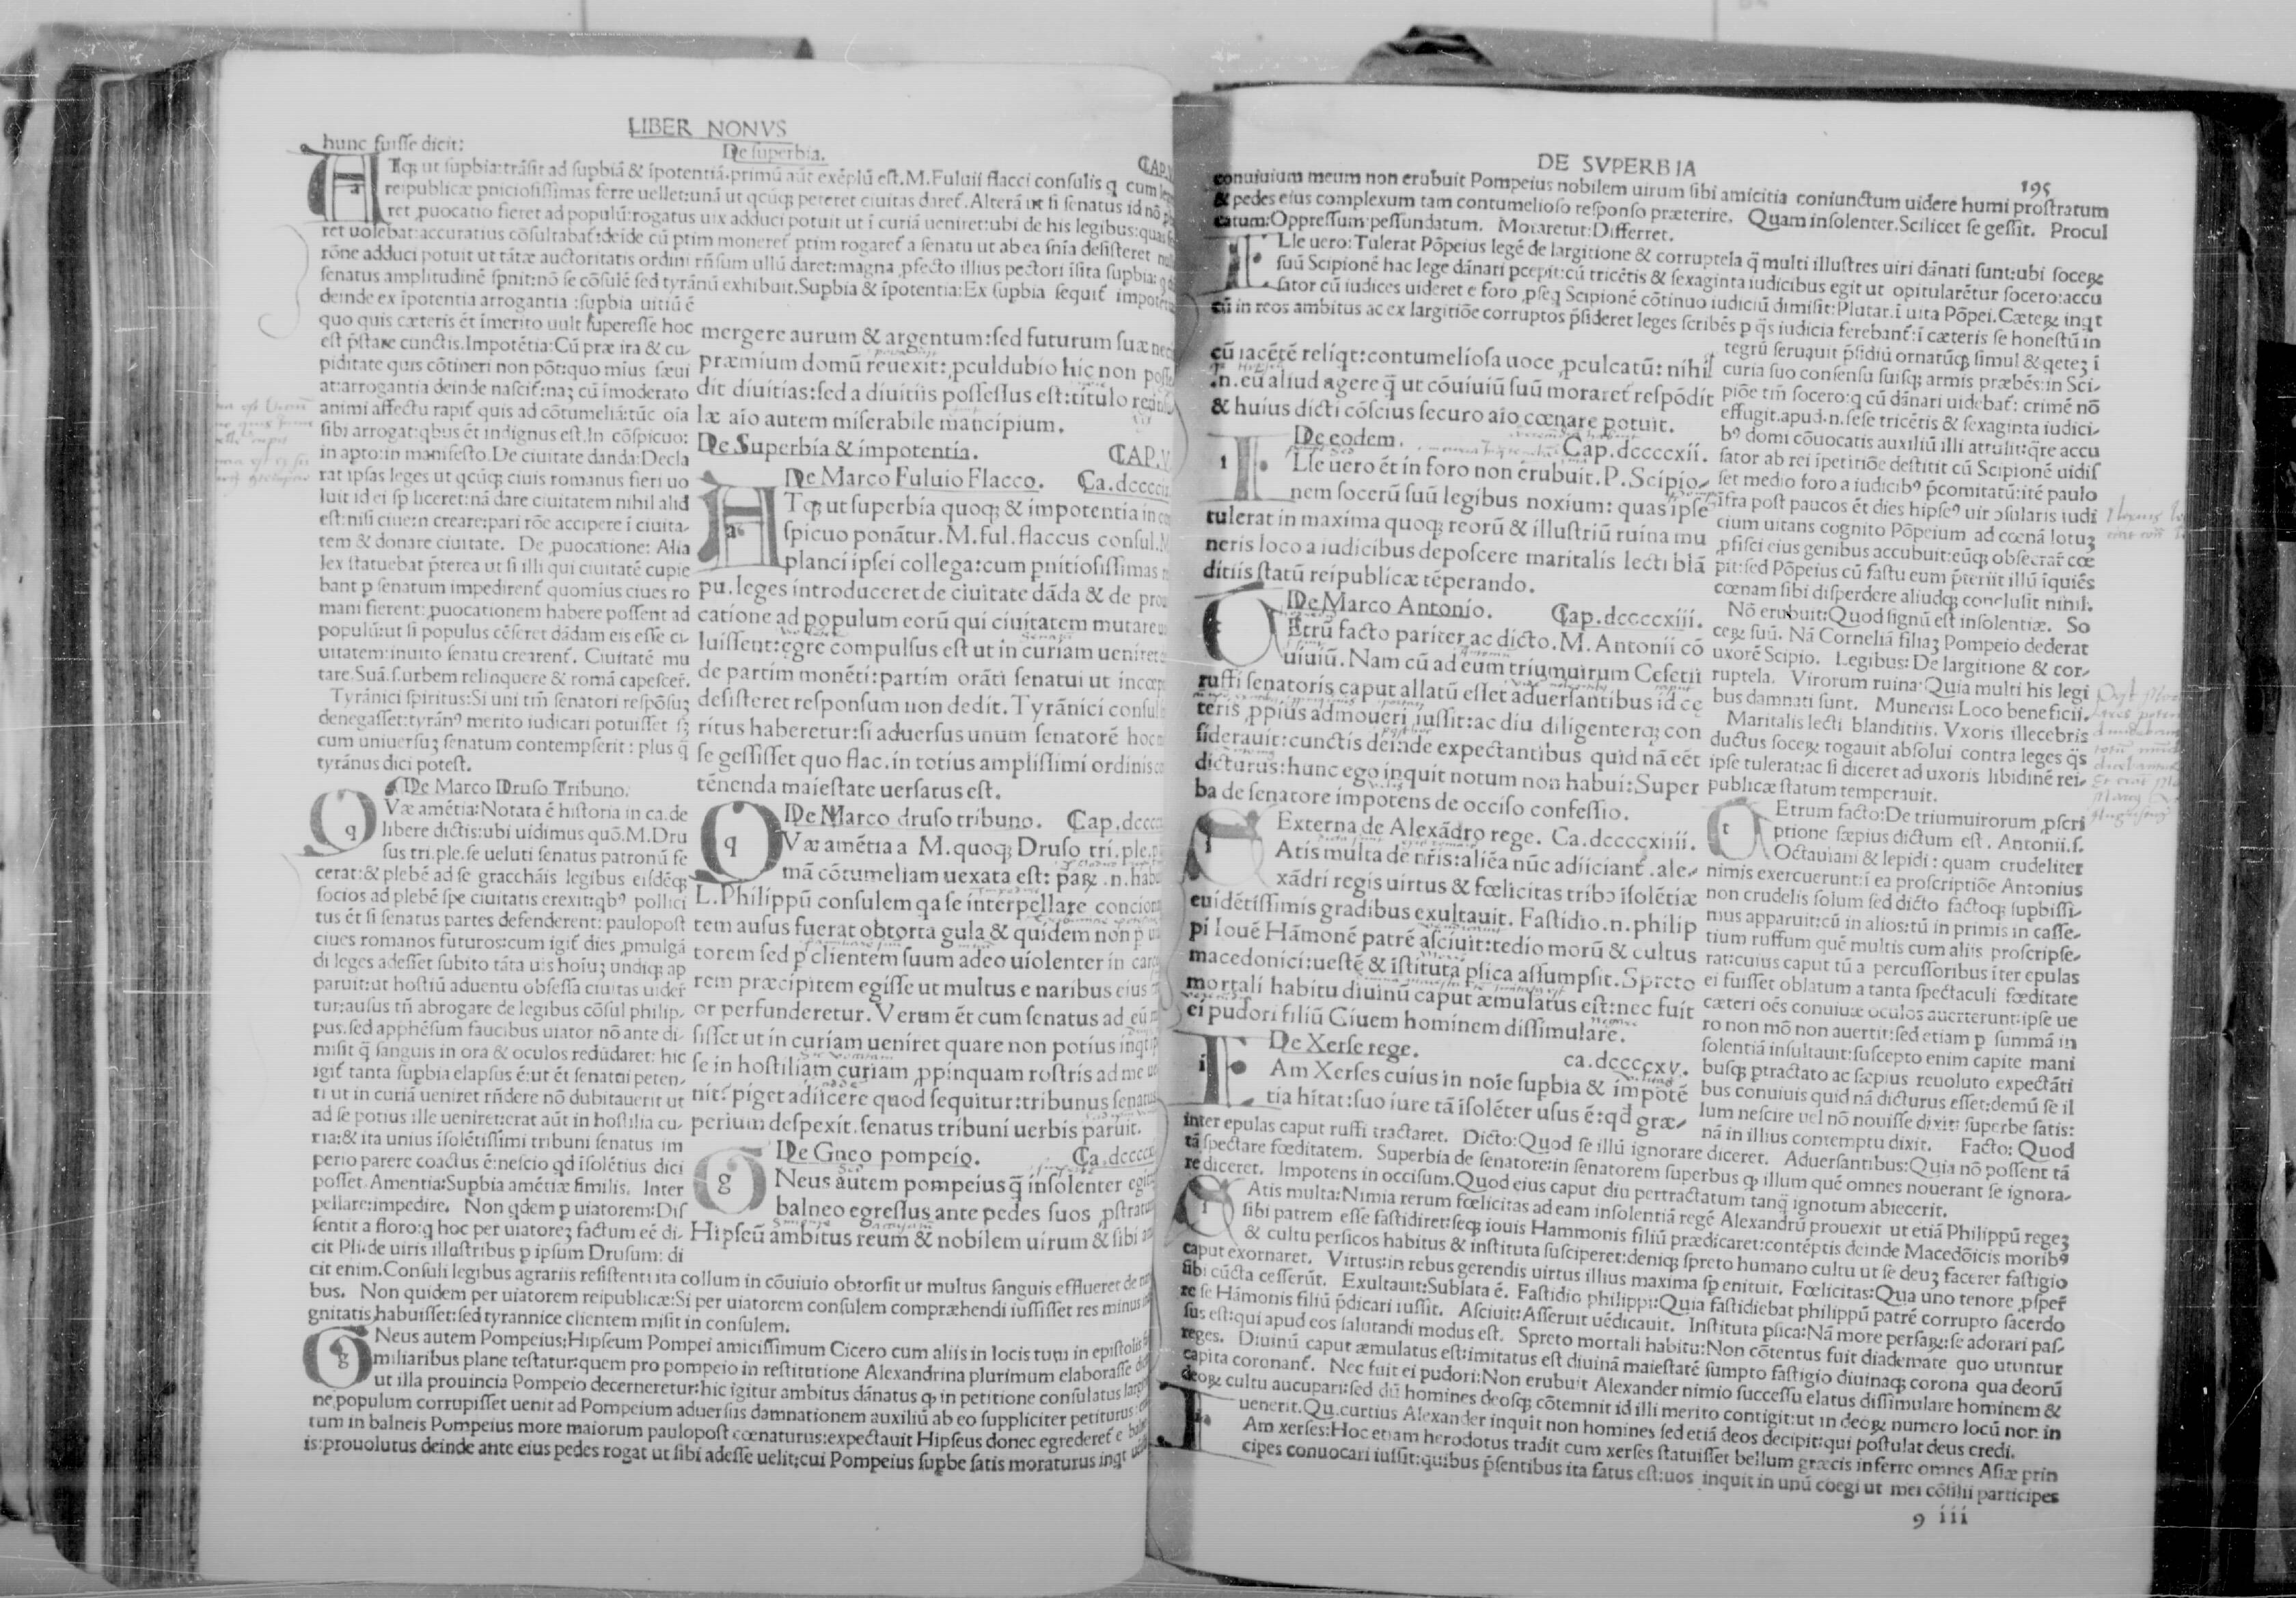 LIBER NONVS
hunc fuisse dicit:
De superbia.
CAP.V
ATq; ut supbia:trāsit ad supbiā & īpotentiā.primū aūt exēplū est.M.Fuluii flacci consulis q cum leges
reipublicæ pniciosissimas ferre uellet:unā ut qcūq; peteret ciuitas daret̄. Alterā ut si senatus id nō
ret ꝓuocatio fieret ad populū:rogatus uix adduci potuit ut ī curiā ueniret:ubi de his legibus:quas
ret uolebat:accuratius cōsultabat̄:deīde cū ptim moneret̄ ptim rogaret̄ a senatu ut ab ea snīa desisteret
rōne adduci potuit ut tātæ auctoritatis ordini rñsum ullū daret:magna ꝓfecto illius pectori īsita supbia:
senatus amplitudinē spnit:nō se cōsulē sed tyrānū exhibuit.Supbia & īpotentia:Ex supbia sequit̄
deinde ex īpotentia arrogantia :supbia uitiū ē
quo quis cæteris ēt īmerito uult superesse hoc
est p̄stare cunctis.Impotētia:Cū præ ira & cu-
piditate quis cōtineri non pōt:quo mius sæui
at:arrogantia deinde nascit̄:naʒ cū īmoderato
animi affectu rapit̄ quis ad cōtumeliā:tūc oīa
sibi arrogat:qbus ēt indignus est.In cōspicuo:
in apto:in manifesto.De ciuitate danda:Decla
rat ipsas leges ut qcūq; ciuis romanus fieri uo
luit id ei sp liceret:nā dare ciuitatem nihil aliđ
est:nisi ciuem creare:pari rōe accipere ī ciuita-
tem & donare ciuitate. De ꝓuocatione: Alia
lex statuebat p̄terea ut si illi qui ciuitatē cupie
bant p senatum impedirent̄ quomius ciues ro
mani fierent:ꝓuocationem habere possent ad
populū:ut si populus cēseret dādam eis esse ci-
uitatem:inuito senatu crearent̄. Ciuitatē mu
tare.Suā.s.urbem relinquere & romā capescer̄.
Tyrānici spiritus:Si uni tm̄ senatori respōsuʒ
denegasset:tyrān⁹ merito iudicari potuisset sʒ
cum uniuersuʒ senatum contempserit : plus q̄
tyrānus dici potest.
De Marco Druso Tribuno.
QVæ amētia:Notata ē historia in ca.de
libere dictis:ubi uidimus quō.M.Dru
sus tri.ple.se ueluti senatus patronū se
cerat:& plebē ad se gracchāis legibus eisdēq;
socios ad plebē spe ciuitatis erexit:qb⁹ pollici
tus ēt si senatus partes defenderent: paulopost
ciues romanos futuros:cum igit̄ dies ꝓmulgā
di leges adesset subito tāta uis hoīuʒ undiq; ap
paruit:ut hostiū aduentu obsessa ciuitas uider̄
tur:ausus tn̄ abrogare de legibus cōsul philip-
pus.sed apphēsum faucibus uiator nō ante di-
misit q̄ sanguis in ora & oculos redūdaret: hic
igit̄ tanta supbia elapsus ē:ut ēt senatui peten-
ti ut in curiā ueniret rñdere nō dubitauerit ut
ad se potius ille ueniret:erat aūt in hostilia cu-
ria:& ita unius īsolētissimi tribuni senatus im
perio parere coactus ē:nescio qđ īsolētius dici
posset. Amentia:Supbia amētiæ similis. Inter
pellare:impedire. Non qdem p uiatorem:Dif
sentit a floro:q hoc per uiatoreʒ factum eē di-
cit Pli.de uiris illustribus p ipsum Drusum: di
cit enim.Consuli legibus agrariis resistenti ita collum in cōuiuio obtorsit ut multus sanguis efflueret de
bus. Non quidem per uiatorem reipublicæ:Si per uiatorem consulem compræhendi iussisset res minus
gnitatis habuisset:sed tyrannice clientem misit in consulem.
GNeus autem Pompeius:Hipseum Pompei amicissimum Cicero cum aliis in locis tum in epistolis
miliaribus plane testatur:quem pro pompeio in restitutione Alexandrina plurimum elaborasse
ut illa prouincia Pompeio decerneretur:hic igitur ambitus dānatus ꝙ in petitione consulatus
ne populum corrupisset uenit ad Pompeium aduersus damnationem auxiliū ab eo suppliciter petiturus:
tum in balneis Pompeius more maiorum paulopost cœnaturus:expectauit Hipseus donec egrederet̄ e
is:prouolutus deinde ante eius pedes rogat ut sibi adesse uelit:cui Pompeius supbe satis moraturus inqt
mergere aurum & argentum:sed futurum suæ
præmium domū reuexit: ꝓculdubio hic non
dit diuitias:sed a diuitiis possessus est:titulo
læ aio autem miserabile mancipium.
De Superbia & impotentia. CAP.V
De Marco Fuluio Flacco. Ca.dcccc
ATq; ut superbia quoq; & impotentia in
spicuo ponātur.M.ful.flaccus consul.M
planci ipsei collega:cum pnitiosissimas
pu.leges introduceret de ciuitate dāda & de
catione ad populum eorū qui ciuitatem mutare
luissent:ęgre compulsus est ut in curiam ueniret
de partim monēti:partim orāti senatui ut
desisteret responsum non dedit.Tyrānici
ritus haberetur:si aduersus unum senatorē hoc
se gessisset quo flac.in totius amplissimi ordinis
tēnenda maiestate uersatus est.
De Marco druso tribuno. Cap.dcccc
QVæ amētia a M.quoq; Druso tri.ple.
mā cōtumeliam uexata est: paꝝ.n.
L.Philippū consulem qa se interpellare
tem ausus fuerat obtorta gula & quidem non p
torem sed p clientem suum adeo uiolenter in
rem præcipitem egisse ut multus e naribus eius
or perfunderetur.Verum ēt cum senatus ad eū
sisset ut in curiam ueniret quare non potius
se in hostiliam curiam ꝓpinquam rostris ad me
nit: piget adiicere quod sequitur:tribunus senatus
perium despexit.senatus tribuni uerbis paruit.
De Gneo pompeio. Ca.dcccc
GNeus autem pompeius q̄ insolenter
balneo egressus ante pedes suos
Hipseū ambitus reum & nobilem uirum & sibi
DE SVPERBIA
195
conuiuium meum non erubuit Pompeius nobilem uirum sibi amicitia coniunctum uidere humi prostratum
& pedes eius complexum tam contumelioso responso præterire. Quam insolenter.Scilicet se gessit. Procul
catum:Oppressum:pessundatum. Moraretur:Differret.
ILle uero:Tulerat Pōpeius legē de largitione & corruptela q̄ multi illustres uiri dānati sunt:ubi soceꝝ
suū Scipionē hac lege dānari pcepit:cū tricētis & sexaginta iudicibus egit ut opitularētur socero:accu
sator cū iudices uideret e foro ꝓseq Scipionē cōtinuo iudiciū dimisit:Plutar.ī uita Pōpei.Cæteꝝ inqt
cū in reos ambitus ac ex largitiōe corruptos p̄sideret leges scribēs p q̄s iudicia ferebant̄:ī cæteris se honestū in
tegrū seruauit p̄sidiū ornatūq; simul & qeteʒ ī
curia suo consensu suisq; armis præbēs:in Sci-
piōe tm̄ socero:q cū dānari uidebat̄: crimē nō
effugit.apud.n.sese tricētis & sexaginta iudici-
b⁹ domi cōuocatis auxiliū illi attulit:q̄re accu
sator ab rei īpetitiōe destitit cū Scipionē uidis
set medio foro a iudicib⁹ p̄comitatū:itē paulo
īfra post paucos ēt dies hipse⁹ uir ɔsularis iudi
cium uitans cognito Pōpeium ad cœnā lotuʒ
ꝓfisci eius genibus accubuit:eūq; obsecrar̄ cœ
pit:sed Pōpeius cū fastu eum p̄teriit illū īquiēs
cœnam sibi disperdere aliudq; conclusit nihil.
Nō erubuit:Quod signū est insolentiæ. So
ceꝝ suū. Nā Corneliā filiaʒ Pompeio dederat
uxorē Scipio. Legibus: De largitione & cor-
ruptela. Virorum ruina:Quia multi his legi
bus damnati sunt. Muneris: Loco beneficii.
Maritalis lecti blanditiis. Vxoris illecebris
ductus soceꝝ rogauit absolui contra leges q̄s
ipse tulerat:ac si diceret ad uxoris libidinē rei-
publicæ statum temperauit.
TEtrum facto:De triumuirorum ꝓscri
ptione sæpius dictum est. Antonii.s.
Octauiani & lepidi : quam crudeliter
nimis exercuerunt:ī ea proscriptiōe Antonius
non crudelis solum sed dicto factoq; supbissi-
mus apparuit:cū in alios:tū in primis in casse-
tium ruffum quē multis cum aliis proscripse-
rat:cuius caput tū a percussoribus iter epulas
ei fuisset oblatum a tanta spectaculi fœditate
cæteri oēs conuiuæ oculos auerterunt:ipse ue
ro non mō non auertit:sed etiam p summā in
solentiā insultauit:suscepto enim capite mani
busq; ptractato ac sæpius reuoluto expectāti
bus conuiuis quid nā dicturus esset:demū se il
lum nescire uel nō nouisse dixit: superbe satis:
nā in illius contemptu dixit. Facto: Quod
cū iacētē reliqt:contumeliosa uoce ꝓculcatū: nihil
.n.eū aliud agere q̄ ut cōuiuiū suū moraret̄ respōdit
& huius dicti cōscius securo aīo cœnare potuit.
De eodem. Cap.dccccxii.
ILle uero ēt in foro non erubuit.P.Scipio-
nem socerū suū legibus noxium: quas ipse
tulerat in maxima quoq; reorū & illustriū ruina mu
neris loco a iudicibus deposcere maritalis lecti blā
ditiis statū reipublicæ tēperando.
De Marco Antonio. Cap.dccccxiii.
TEtrū facto pariter ac dicto.M.Antonii cō
uiuiū.Nam cū ad eum triumuirum Cesetii
ruffi senatoris caput allatū esset aduersantibus id cę
teris ꝓpius admoueri iussit:ac diu diligenterq; con
siderauit:cunctis deinde expectantibus quid nā eēt
dicturus:hunc ego inquit notum non habui:Super
ba de senatore impotens de occiso confessio.
Externa de Alexādro rege. Ca.dccccxiiii.
SAtis multa de nr̄is:aliēa nūc adiiciant̄.ale-
xādri regis uirtus & fœlicitas tribɔ īsolētiæ
euidētissimis gradibus exultauit.Fastidio.n.philip
pi Iouē Hāmonē patrē asciuit:tedio morū & cultus
macedonici:uestē & īstituta psica assumpsit.Spreto
mortali habitu diuinū caput æmulatus est:nec fuit
ei pudori filiū Ciuem hominem dissimulare.
De Xerse rege. ca.dccccxv.
IAm Xerses cuius in noīe supbia & impotē
tia hītat:suo iure tā īsolēter usus ē:qđ græ-
inter epulas caput ruffi tractaret. Dicto:Quod se illū ignorare diceret. Aduersantibus:Quia nō possent tā
tā spectare fœditatem. Superbia de senatore:in senatorem superbus ꝙ illum quē omnes nouerant se ignora-
re diceret. Impotens in occisum.Quod eius caput diu pertractatum tanq̄ ignotum abiecerit.
SAtis multa:Nimia rerum fœlicitas ad eam insolentiā regē Alexandrū prouexit ut etiā Philippū regeʒ
sibi patrem esse fastidiret:seq; iouis Hammonis filiū prædicaret:contēptis deinde Macedōicis morib⁹
& cultu persicos habitus & instituta susciperet:deniq; spreto humano cultu ut se deuʒ faceret fastigio
caput exornaret. Virtus:in rebus gerendis uirtus illius maxima sp enituit. Fœlicitas:Qua uno tenore ꝓsper̄
sibi cūcta cesserūt. Exultauit:Sublata ē. Fastidio philippi:Quia fastidiebat philippū patrē corrupto sacerdo
re se Hāmonis filiū p̄dicari iussit. Asciuit:Asseruit uēdicauit. Instituta psica:Nā more persaꝝ:se adorari pas-
sus est:qui apud eos salutandi modus est. Spreto mortali habitu:Non cōtentus fuit diademate quo utuntur
reges. Diuinū caput æmulatus est:imitatus est diuinā maiestatē sumpto fastigio diuinaq; corona qua deorū
capita coronant̄. Nec fuit ei pudori:Non erubuit Alexander nimio successu elatus dissimulare hominem &
deoꝝ cultu aucupari:sed dū homines deosq; cōtemnit id illi merito contigit:ut in deoꝝ numero locū non in
uenerit.Qu.curtius Alexander inquit non homines sed etiā deos decipit:qui postulat deus credi.
IAm xerses:Hoc etiam herodotus tradit cum xerses statuisset bellum græcis inferre omnes Asiæ prin
cipes conuocari iussit:quibus p̄sentibus ita fatus est:uos inquit in unū coegi ut mei cōsilii participes
9 iii